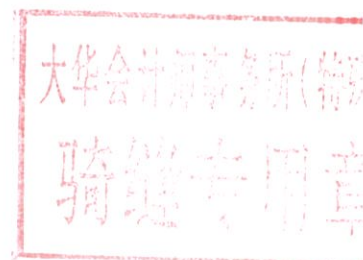 大华会计师事务所(特殊
骑缝专用章